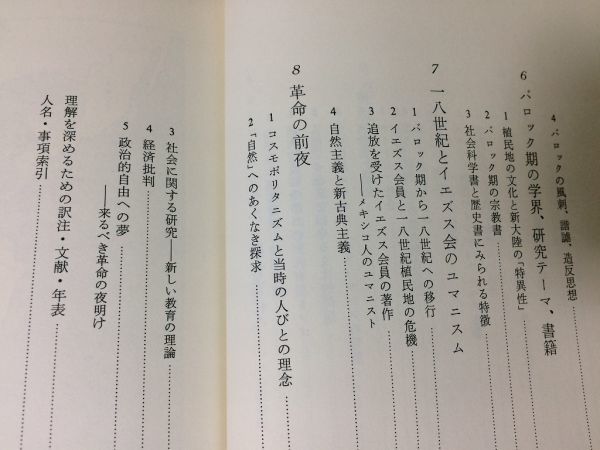 4 バロックの風刺、諧謔、造反思想
6 バロック期の学界、研究テーマ、書籍
1 植民地の文化と新大陸の「特異性」
2 バロック期の宗教書
3 社会科学書と歴史書にみられる特徴
7 一八世紀とイエズス会のユマニスム
1 バロック期から一八世紀への移行
2 イエズス会員と一八世紀植民地の危機
3 追放を受けたイエズス会員の著作
——メキシコ人のユマニスト
4 自然主義と新古典主義
8 革命の前夜
1 コスモポリタニズムと当時の人びとの理念
2 「自然」へのあくなき探求
3 社会に関する研究——新しい教育の理論
4 経済批判
5 政治的自由への夢
——来るべき革命の夜明け
理解を深めるための訳注・文献・年表
人名・事項索引